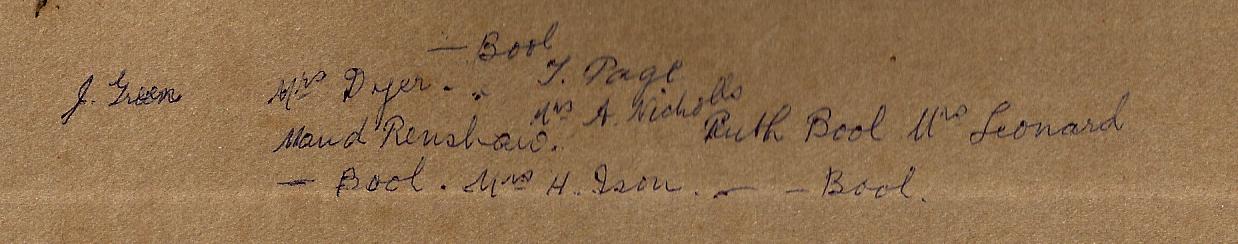 — Bool
J. Green Mrs Dyer - " T. Page
Mrs A. Nicholls
Maud Renshaw. Ruth Bool Mrs Leonard
— Bool. Mrs H. Ison. — — Bool.